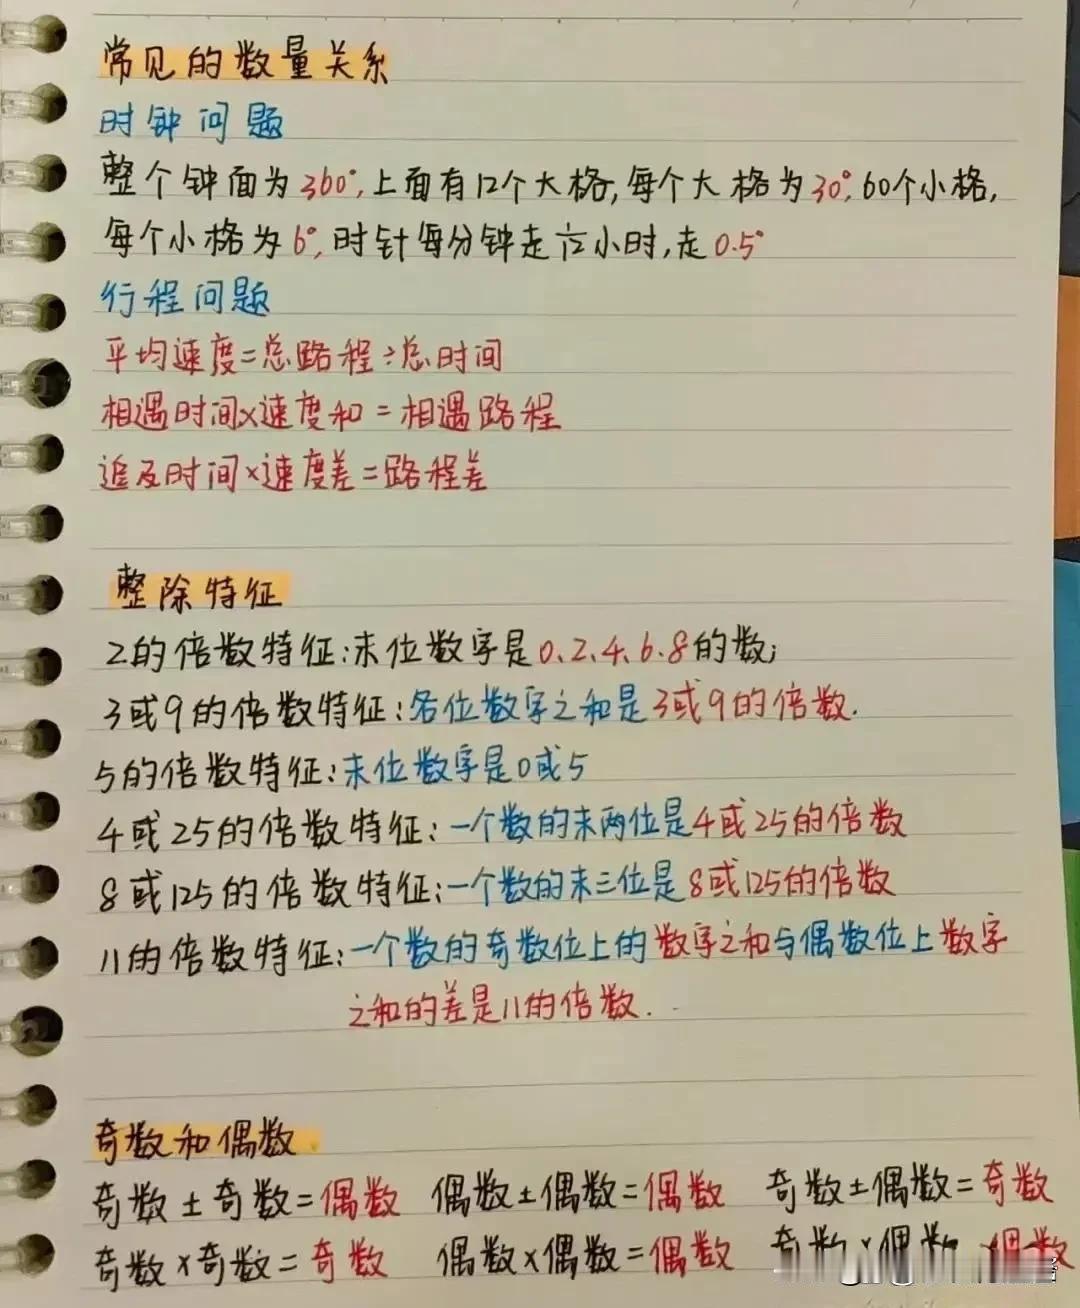 常见的数量关系
时钟问题
整个钟面为360°,上面有12个大格,每个大格为30°,60个小格,
每个小格为6°,时针每分钟走1/12小时,走0.5°
行程问题
平均速度=总路程÷总时间
相遇时间×速度和=相遇路程
追及时间×速度差=路程差
整除特征
2的倍数特征:末位数字是0、2、4、6、8的数;
3或9的倍数特征:各位数字之和是3或9的倍数.
5的倍数特征:末位数字是0或5
4或25的倍数特征:一个数的末两位是4或25的倍数
8或125的倍数特征:一个数的末三位是8或125的倍数
11的倍数特征:一个数的奇数位上的数字之和与偶数位上数字
之和的差是11的倍数.
奇数和偶数
奇数±奇数=偶数 偶数±偶数=偶数 奇数±偶数=奇数
奇数×奇数=奇数 偶数×偶数=偶数 奇数×偶数 偶数